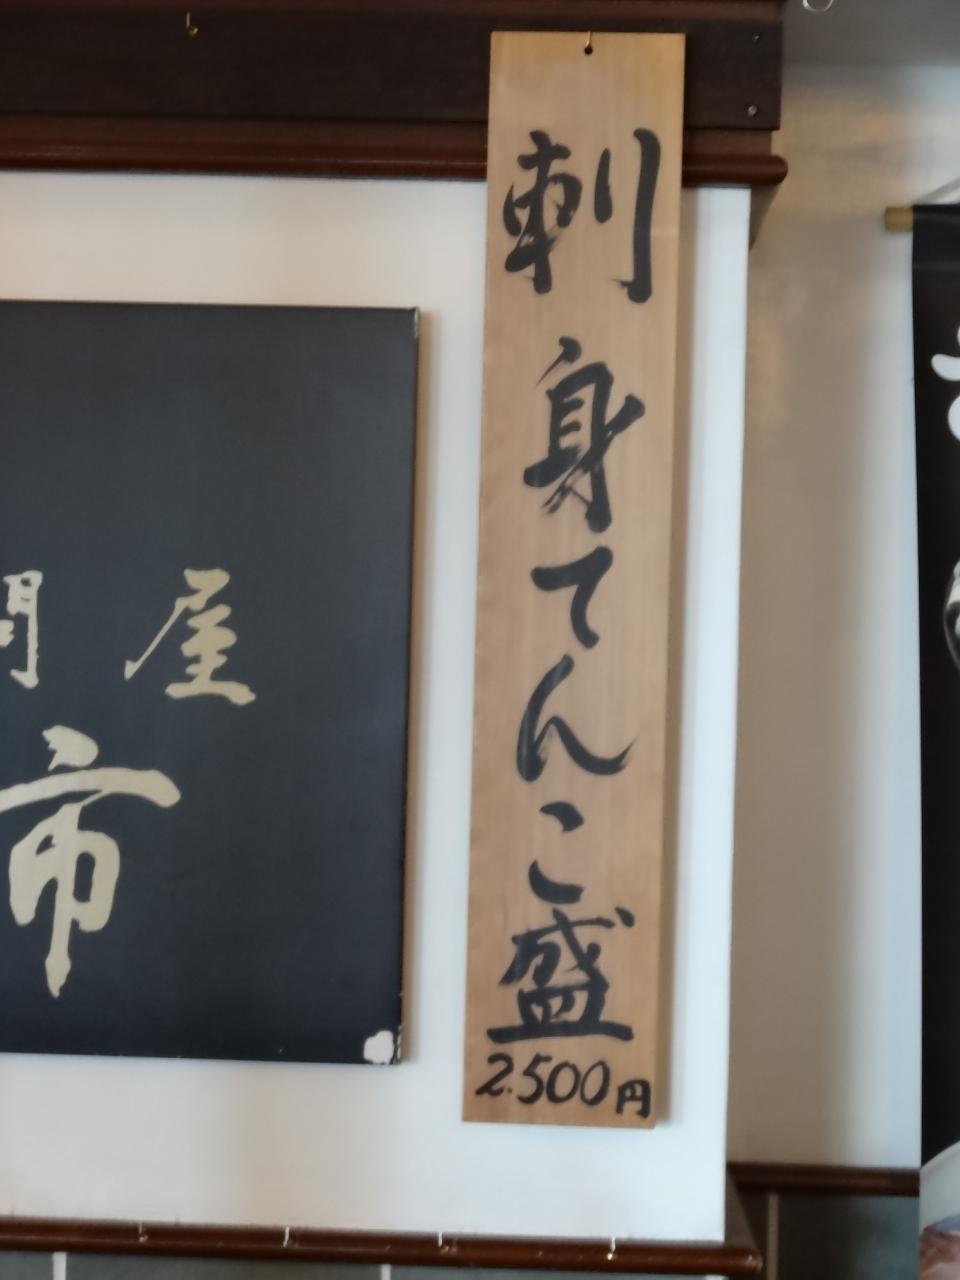 刺身てんこ盛
2.500円
問屋
市